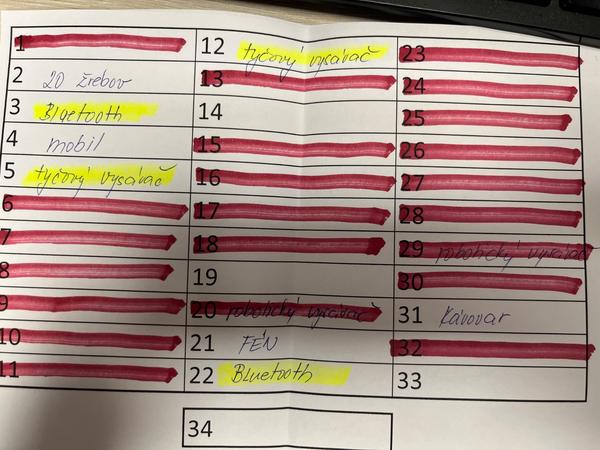 1
2 20 žrebov
3 Bluetooth
4 mobil
5 tyčový vysávač
6
7
8
9
10
11
12 tyčový vysávač
13
14
15
16
17
18
19
20 robotický vysávač
21 FÉN
22 Bluetooth
23
24
25
26
27
28
29 robotický vysávač
30
31 Kávovar
32
33
34